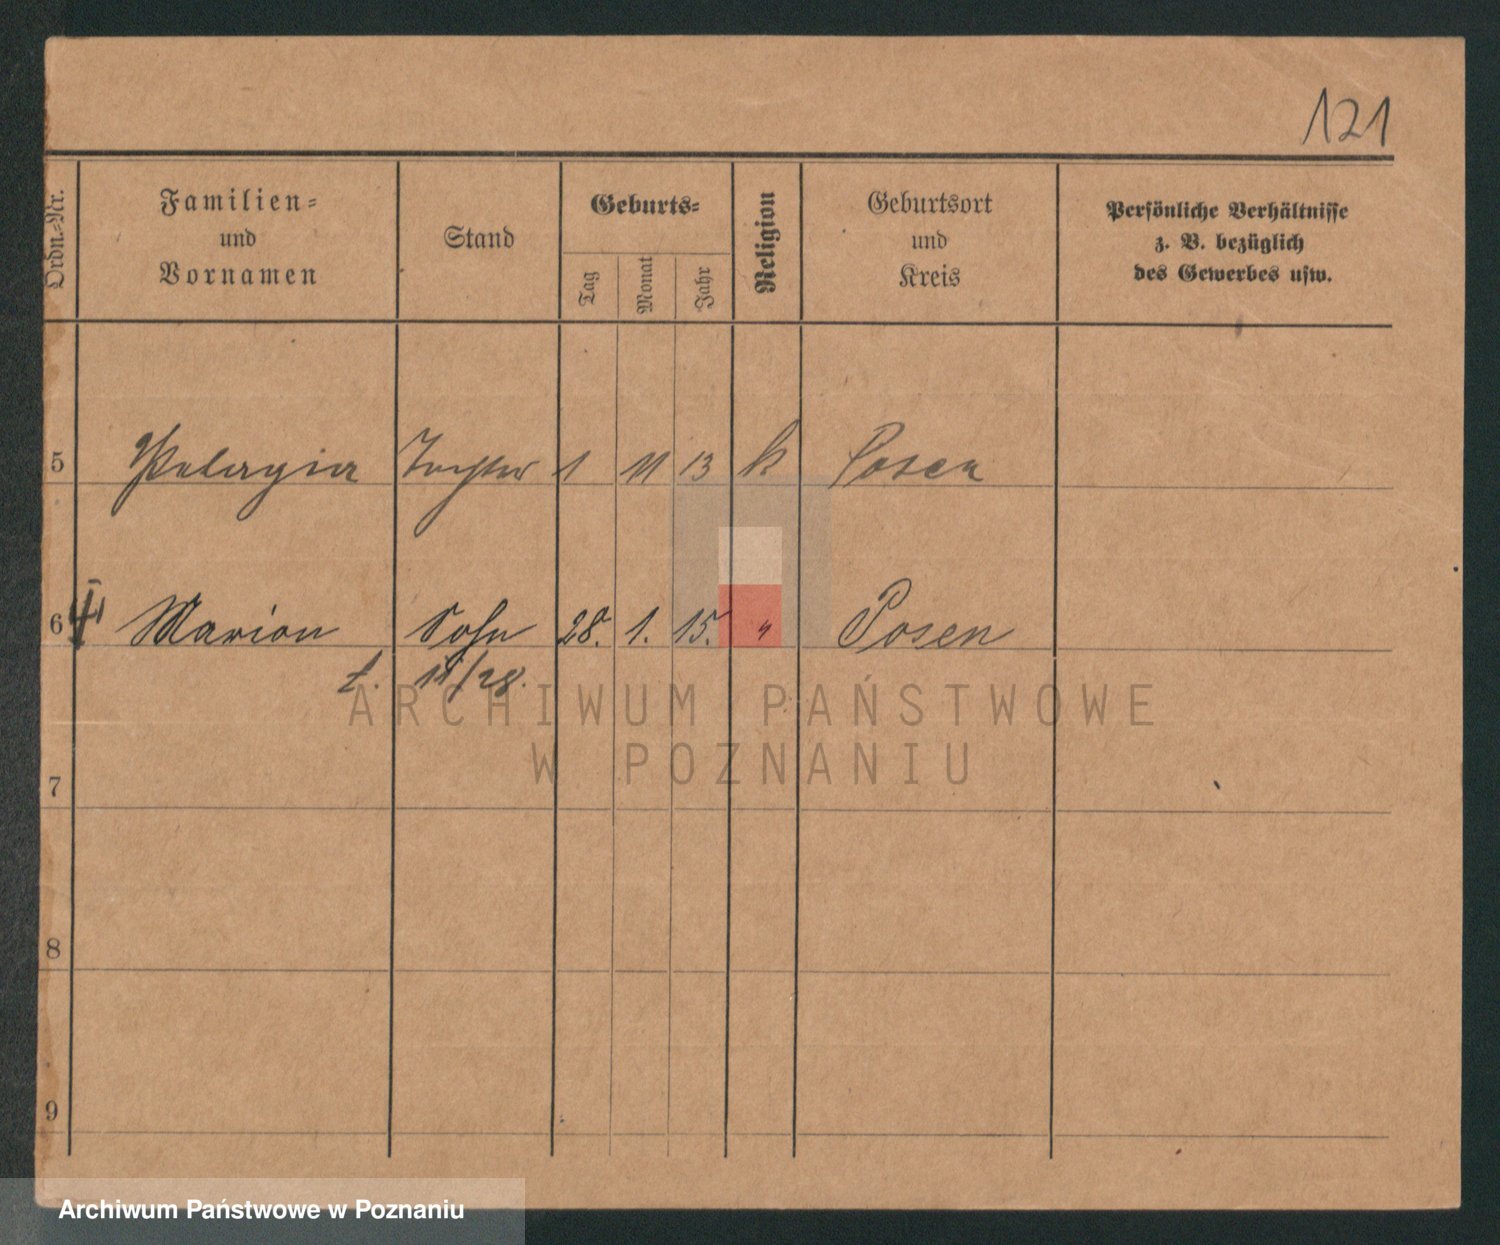 121
Ordn.-Nr.
Familien-
und
Vornamen
Stand
Geburts-
Tag
Monat
Jahr
Religion
Geburtsort
und
Kreis
Persönliche Verhältnisse
z. B. bezüglich
des Gewerbes usw.
5 Pelagia Tochter 1 11 13 k Posen
6 Marian Sohn 28. 1. 15. " Posen
ARCHIWUM PAŃSTWOWE
W POZNANIU
7
8
9
Archiwum Państwowe w Poznaniu